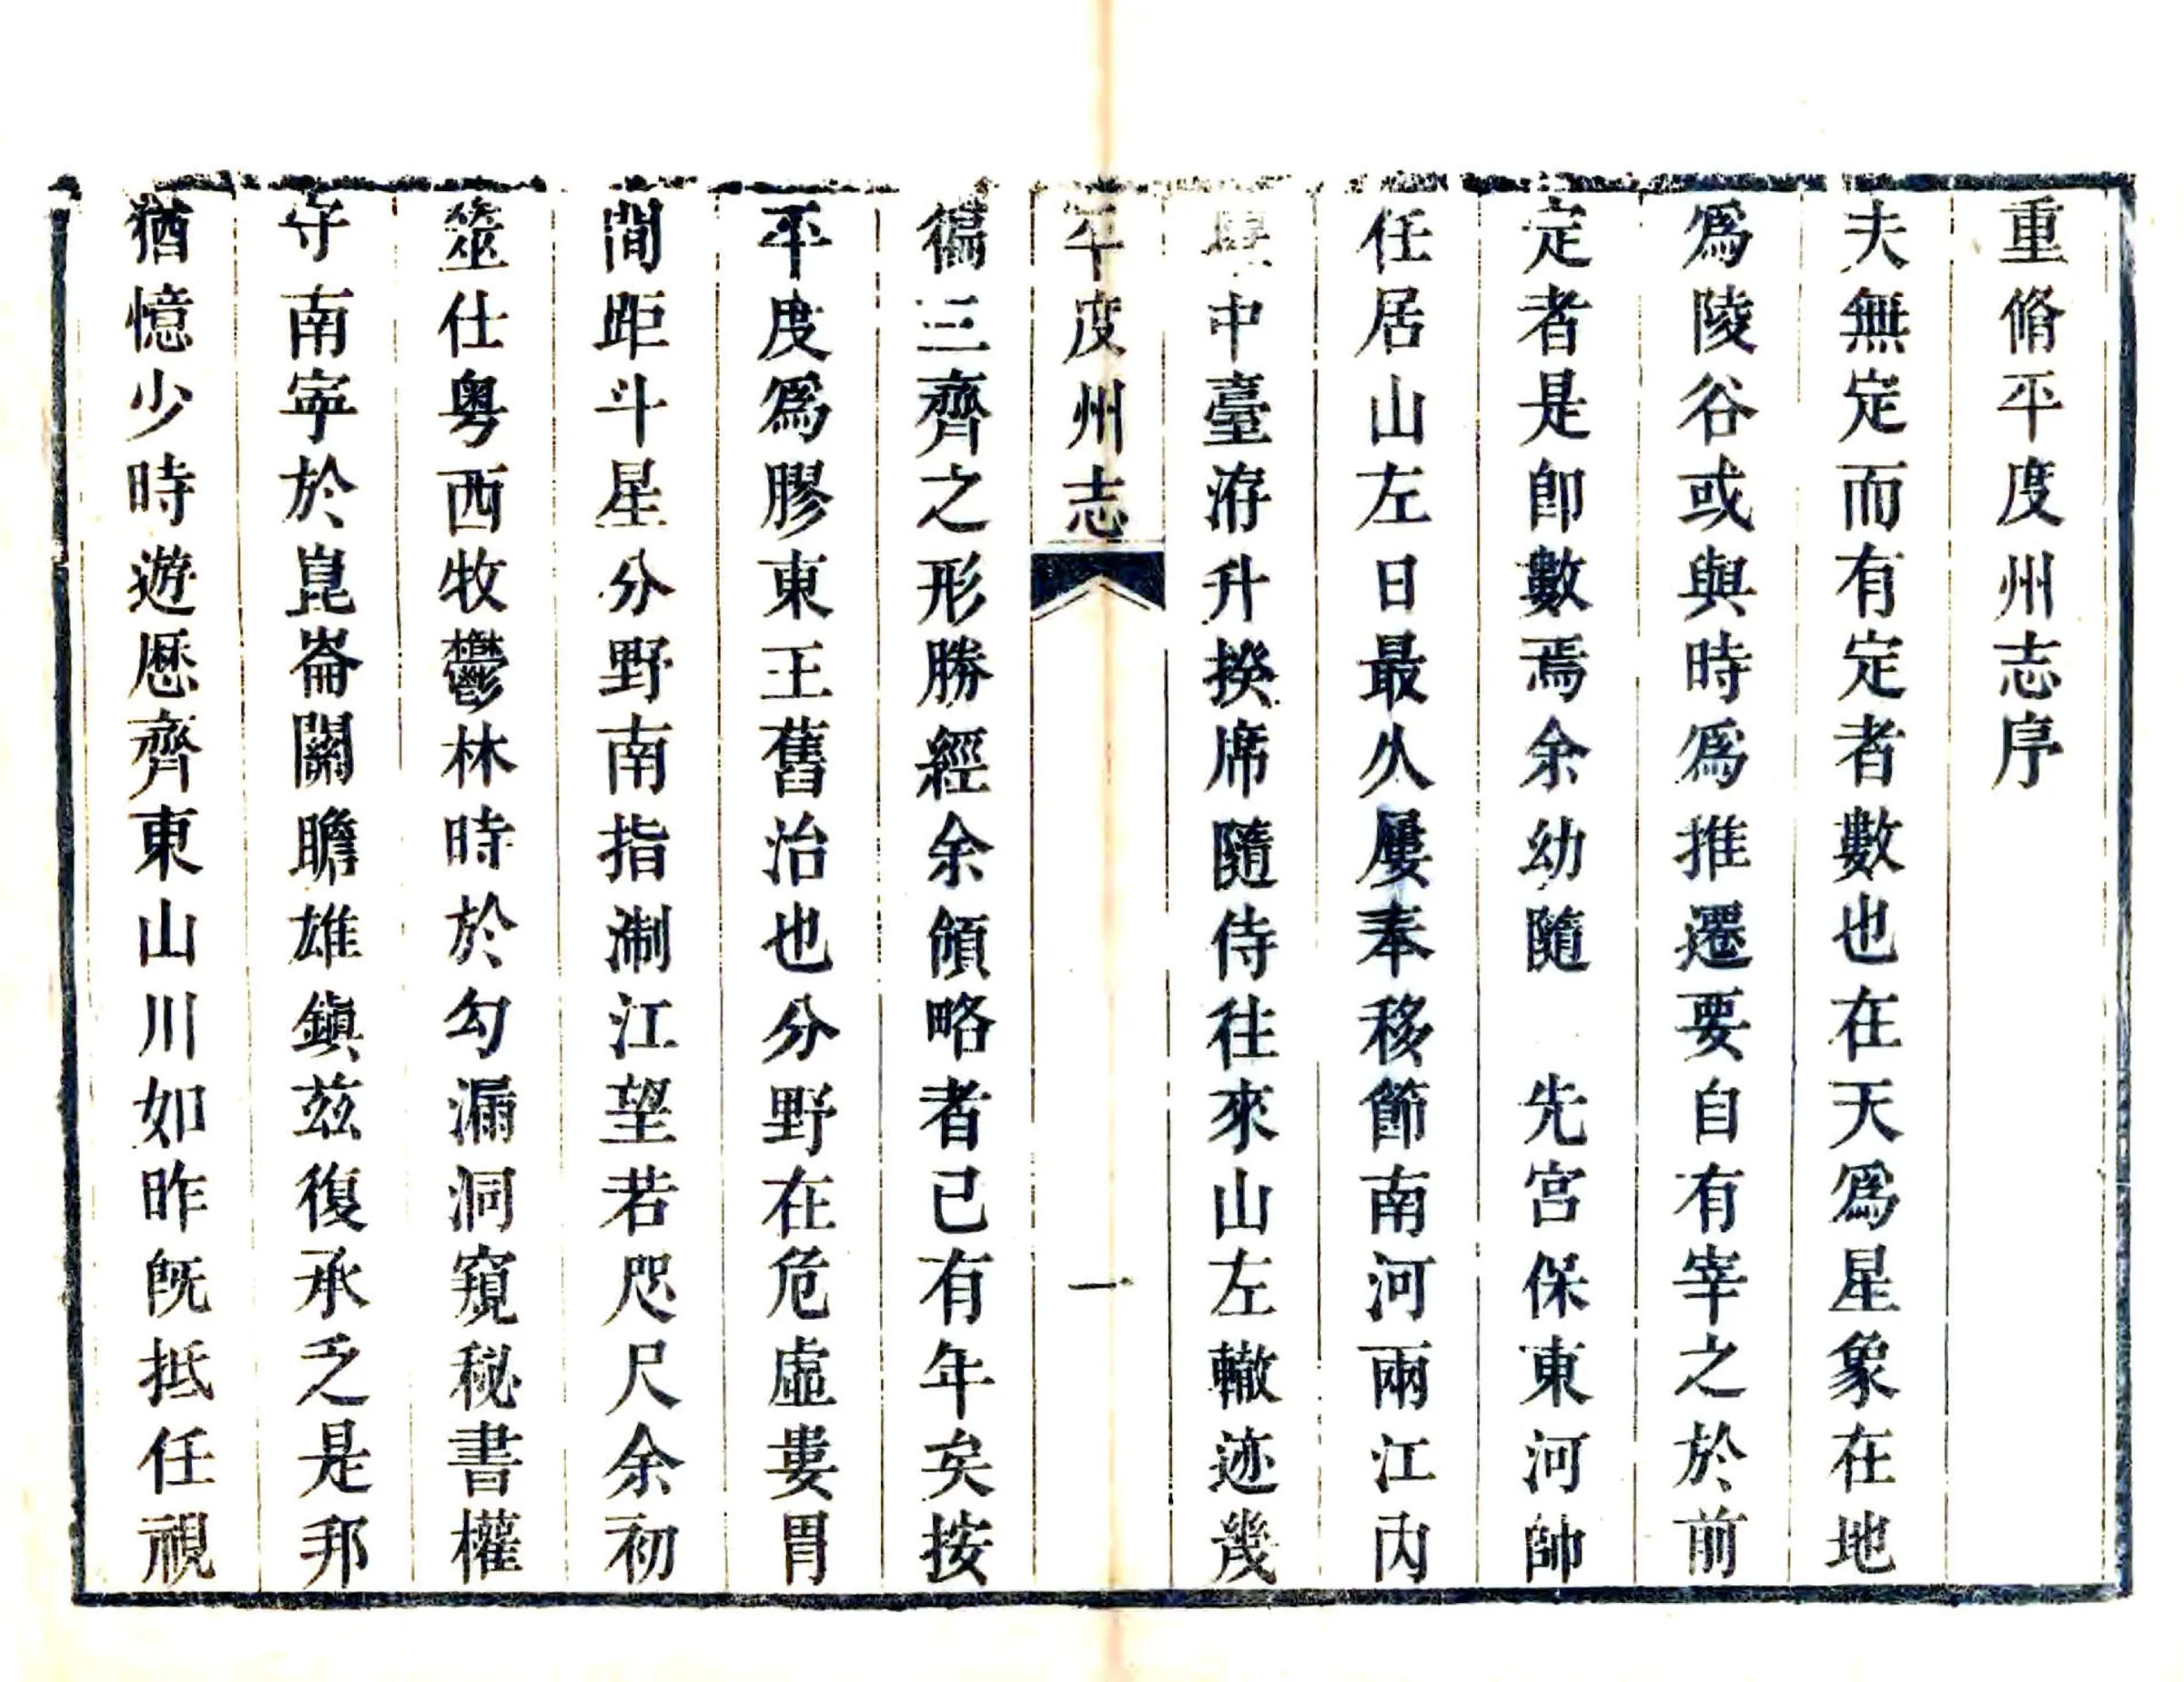 重脩平度州志序
夫無定而有定者數也在天爲星象在地
爲陵谷或與時爲推遷要自有宰之於前
定者是卽數焉余幼隨　先宮保東河帥
任居山左日最久屢奉移節南河兩江內
中臺洊升揆席隨侍往來山左轍迹幾
平度州志
一
徧三齊之形勝經余領略者已有年矣按
平度爲膠東王舊治也分野在危虛婁胃
間距斗星分野南指淛江望若咫尺余初
筮仕粵西牧鬱林時於勾漏洞窺秘書權
守南寜於崑崙關瞻雄鎭茲復承乏是邦
猶憶少時遊歷齊東山川如昨旣抵任視